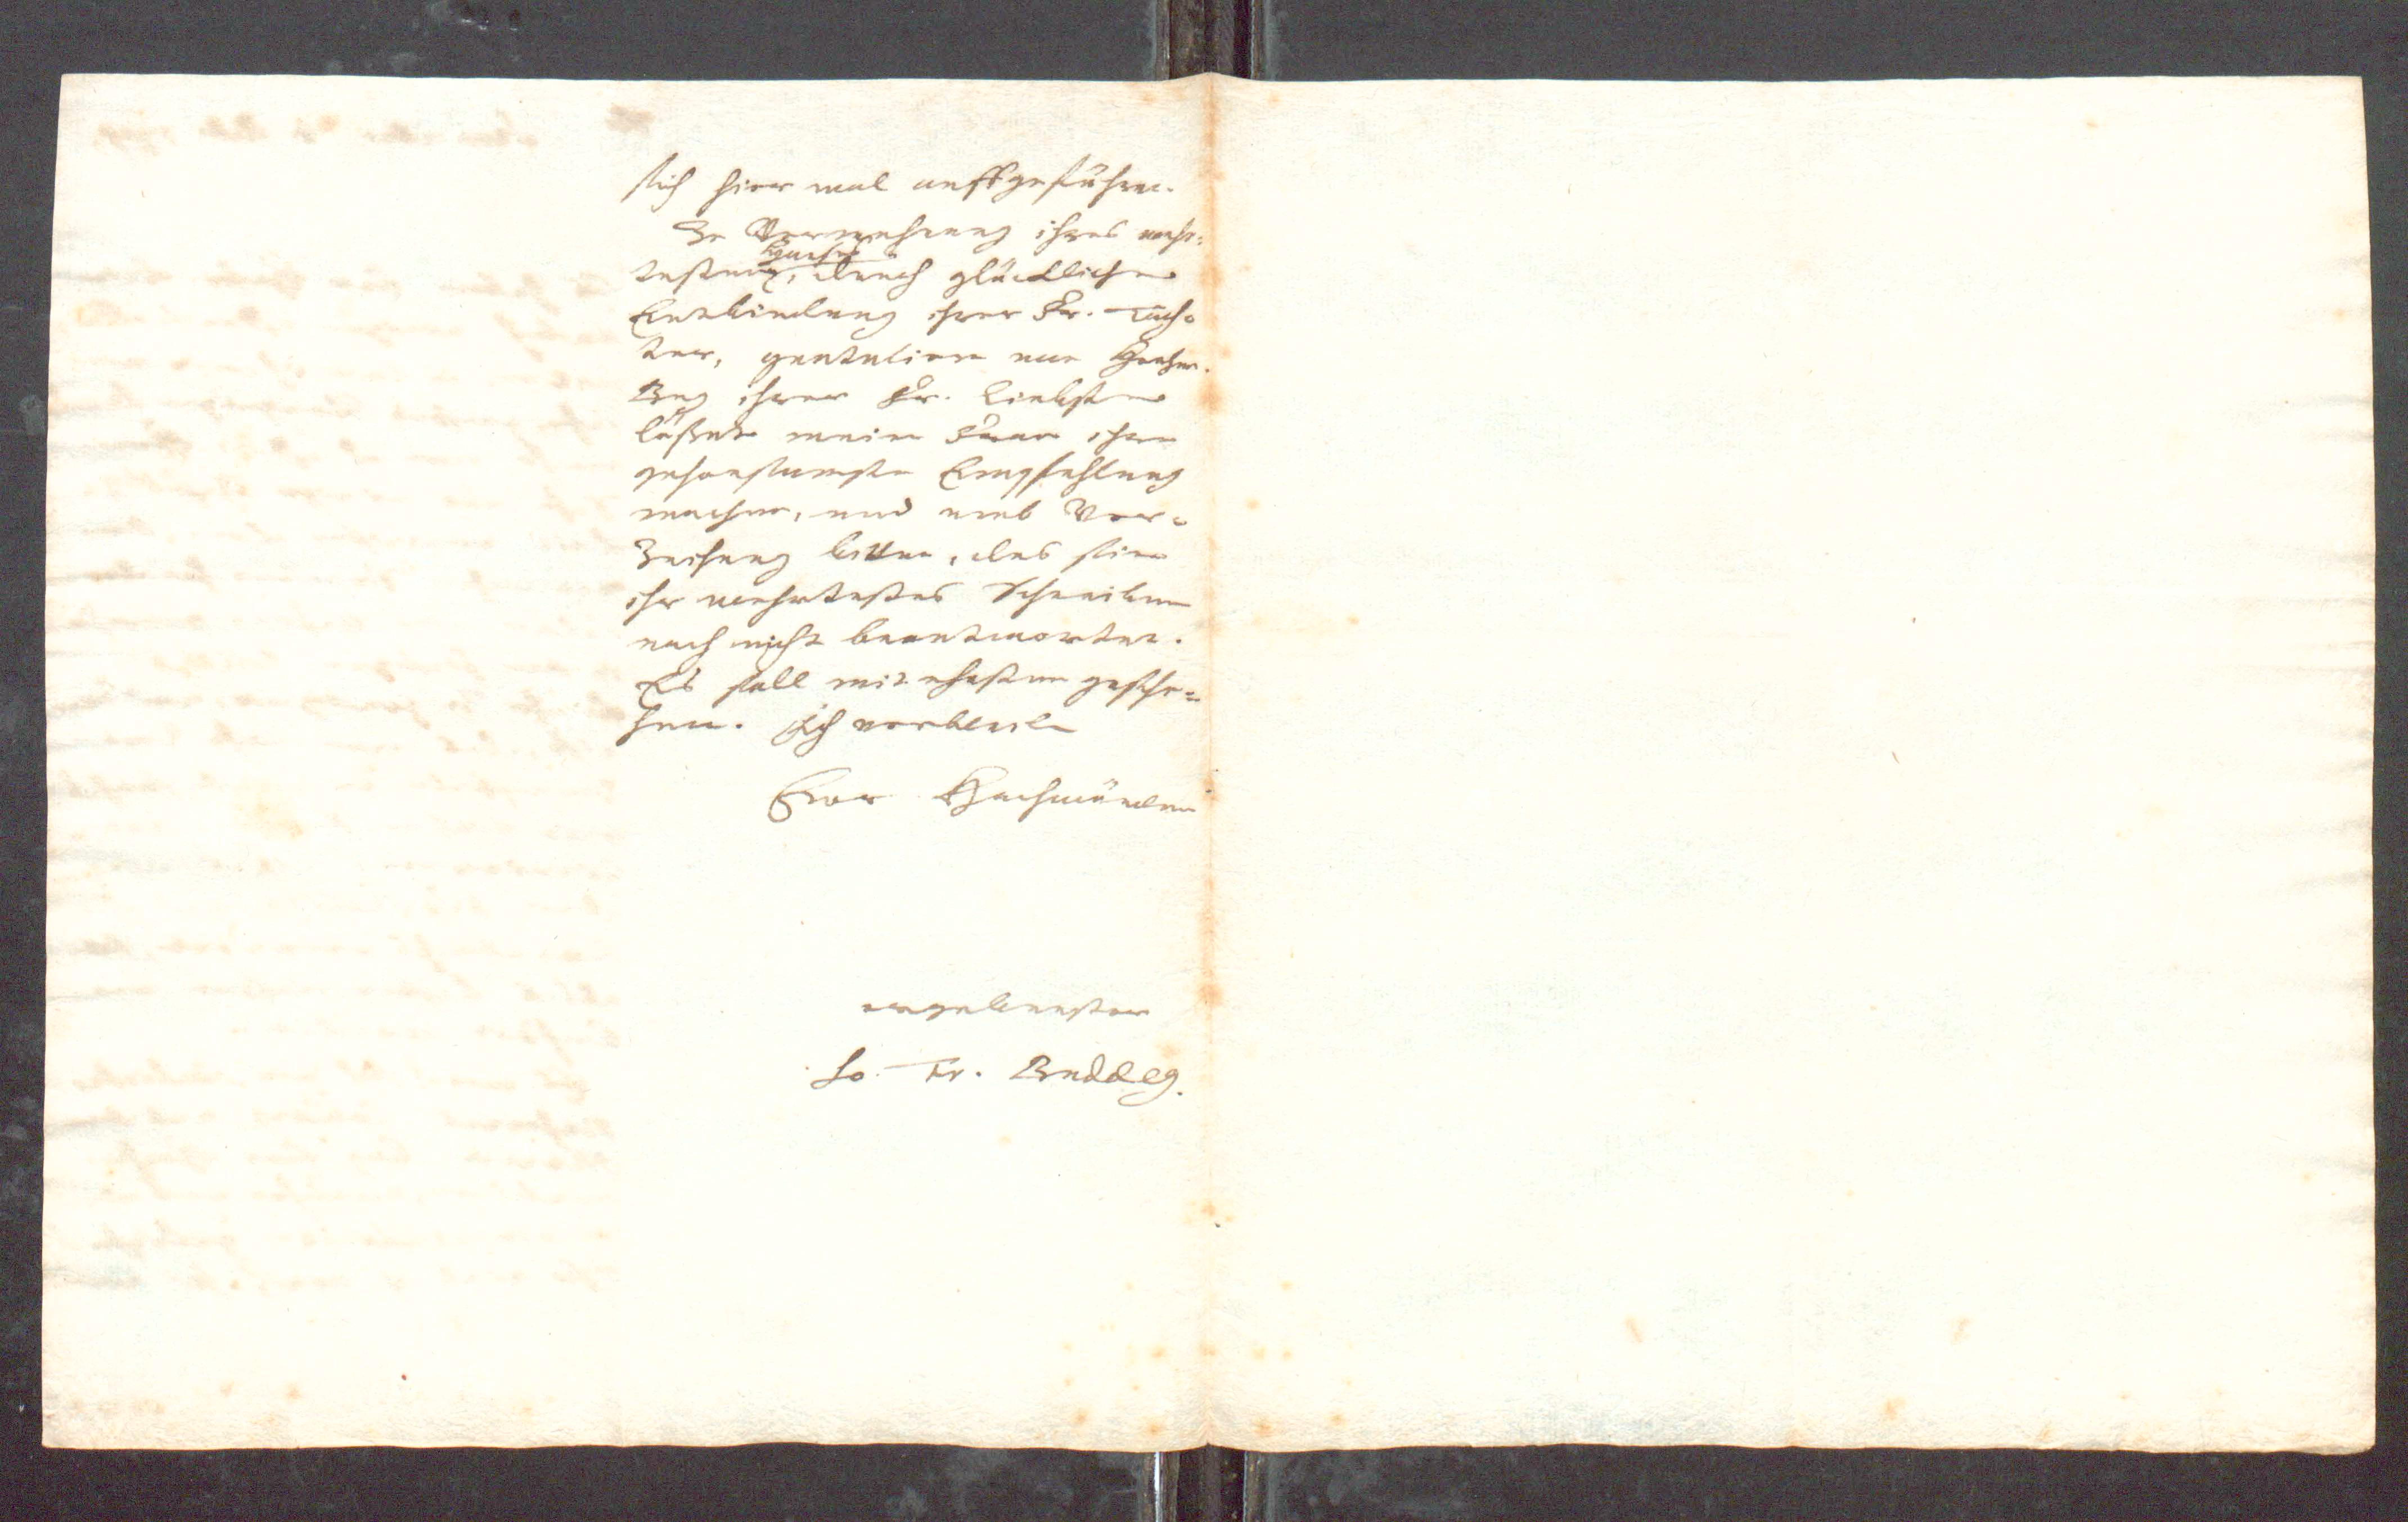 sich hier mal auffgeführet.
Zu Vermehrung ihres wehr¬
testen Hauses, durch glückliche
Entbindung ihrer Fr. Toch¬
ter, gratuliere von Herzen.
Bey ihrer Fr. Liebsten
läßet meine Frau ihre
gehorsamste Empfehlung
machen, und umb Ver¬
zeihung bitten, das sie
ihr wehrtestes Schreiben
noch nicht beantwortet.
Es soll mit ehesten gesche¬
hen. Ich verbleibe
Ewr Hochwürden
ergebenster
Jo. Fr. Buddeg.